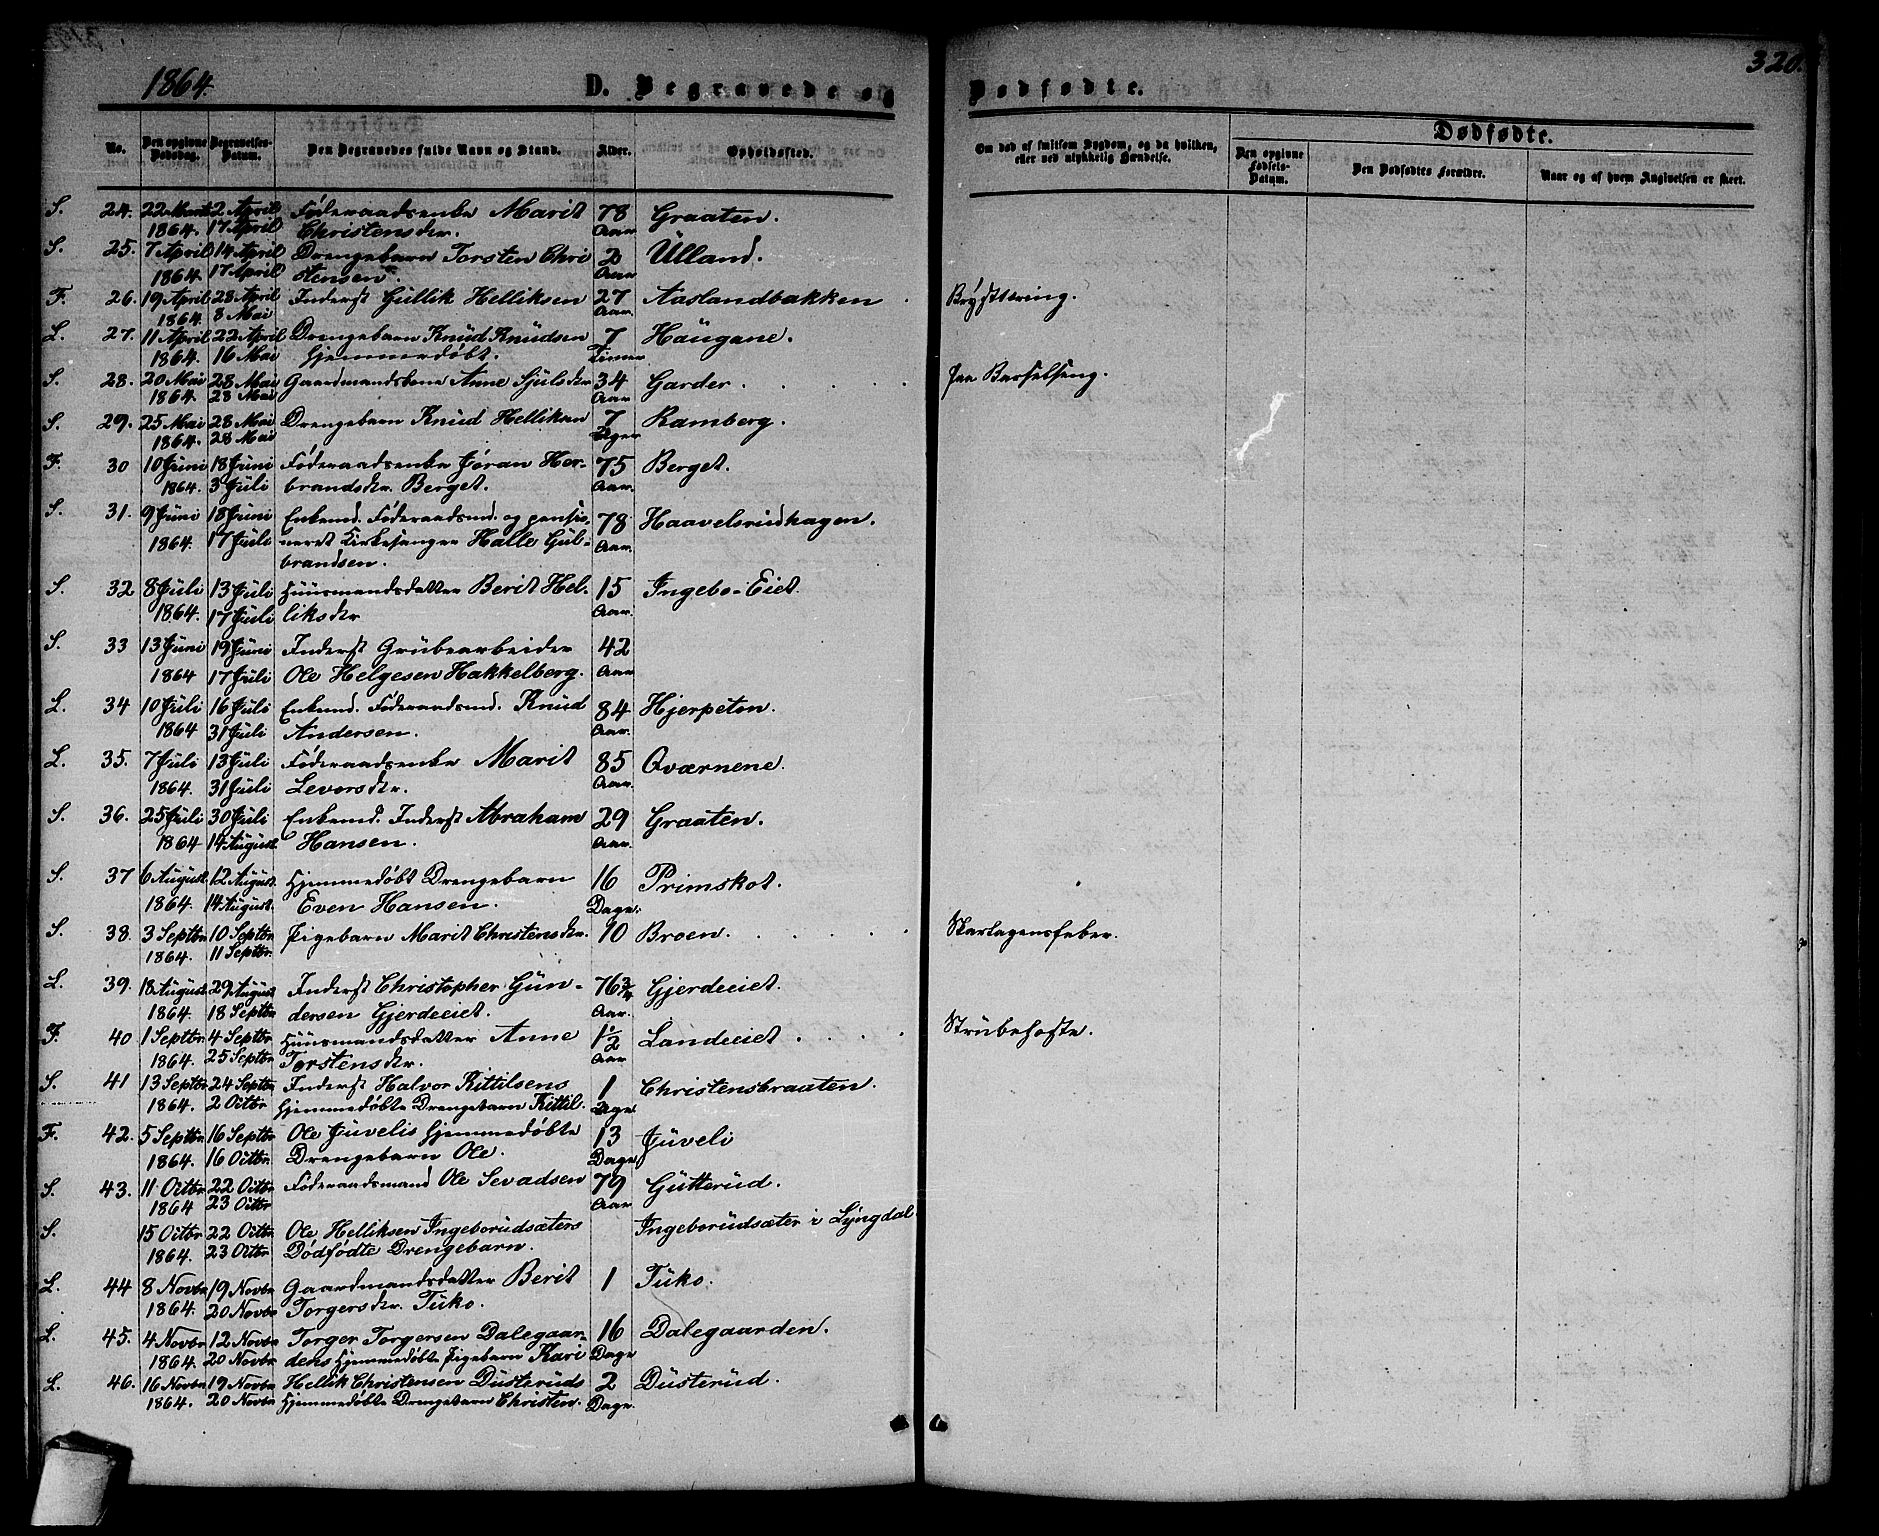 320.
1864.
D. Begravede og Dødfødte.
No.
Den opgivne Dødsdag.
Begravelses-Datum.
Den Begravedes fulde Navn og Stand.
Alder.
Opholdssted.
Om død af smitsom Sygdom, og da hvilken, eller ved ulykkelig Hændelse.
Dødfødte.
Den opgivne Fødsels-Datum.
Den Dødfødtes Forældre.
Naar og af hvem Angivelsen er skeet.
S. 24. 22 Marts 2 April Føderaadsenke Marit 78 Graaten.
1864. 17 April Christensdr. Aar
S. 25. 7 April 14 April Drengebarn Torsten Chri 2 Ülland.
1864. 17 April stensen. Aar
F. 26. 19 April 28 April Inderst Gullik Helliksen 27 Aaslandbakken Brysttæring.
1864. 8 Mai Aar.
L. 27. 11 April 22 April Drengebarn Knud Knudsen 7 Haugane.
1864. 16 Mai Hjemmedøbt. Timer
S. 28. 20 Mai 28 Mai Gaardmandskone Anne Sjulsdr 34 Garder. paa Barselseng.
1864. 28 Mai Aar
S. 29. 25 Mai 28 Mai Drengebarn Knud Helliksen 7 Ramberg.
1864. 28 Mai Uger
F. 30 10 Juni 18 Juni Føderaadsenke Jøran Her- 75 Berget.
1864. 3 Juli brandsdr. Berget. Aar.
S. 31. 9 Juni 18 Juni Enkemd. Føderaadsmd. og pensio- 78 Haavelsrudhagen.
1864. 17 Juli neret Kirkesanger Halle Gul- Aar.
brandsen.
S. 32 8 Juli 13 Juli Huusmandsdatter Berit Hel- 15 Ingebo-Eiet.
1864. 17 Juli liksdr Aar.
S. 33 13 Juni 19 Juni Inderst Grubearbeider 42
1864 17 Juli Ole Helgesen Hakkelberg. Aar
L. 34 10 Juli 16 Juli Enkemd. Føderaadsmd. Knud 84 Hjerpeton.
1864 31 Juli Andersen. Aar.
L. 35. 7 Juli 13 Juli Føderaadsenke Marit 85 Qværnene.
1864. 31 Juli Levorsdr. Aar.
S. 36. 25 Juli 30 Juli Enkemd. Inderst Abraham 29 Graaten.
1864 14 August. Hansen. Aar.
S. 37 6 August. 12 August. Hjemmedøbt Drengebarn 16 Primskot.
1864. 14 August. Even Hansen. Dage.
S. 38. 3 Septbr 10 Septbr Pigebarn Marit Christensdr. 10 Broen. Skarlagensfeber.
1864. 11 Septbr.
L. 39. 18 August. 29 August Inderst Christopher Gun- 76 3/4 Gjerdeeiet.
1864. 18 Septbr dersen Gjerdeeiet. Aar.
F. 40 1 Septbr 4 Septbr Huusmandsdatter Anne 1 1/2 Landeeiet. Strubehoste.
1864. 25 Septbr Torstensdr. Aar
S. 41 13 Septbr 24 Septbr Inderst Halvor Kittilsens 1 Christensbraaten.
1864. 2 Octbr Hjemmedøbte Drengebarn Kittil. Dage
F. 42. 5 Septbr 16 Septbr Ole Juvelis Hjemmedøbte 13 Juveli
1864. 16 Octbr. Drengebarn Ole. Dage
S. 43. 11 Octbr 22 Octbr Føderaadsmand Ole Sevadsen 79 Gutterud.
1864 23 Octbr Aar
S. 15 Octbr 22 Octbr Ole Helliksen Ingeborudsæters Ingeborudsæter i Lyngdal.
1864. 23 Octbr Dødfødte Drengebarn.
L. 44 8 Novbr 19 Novbr Gaardmandsdatter Berit 1 Tuko.
1864. 20 Novbr Torgersdr. Tuko.
L. 45. 4 Novbr 12 Novbr Torger Torgersen Dalegaar- 16 Dalegaarden.
1864. 20 Novbr dens Hjemmedøbte Pigebarn Kari Dage
L. 46. 16 Novbr 19 Novbr Hellik Christensen Dusteruds 2 Dusterud.
1864. 20 Novbr Hjemmedøbte Drengebarn Christen. Dage.